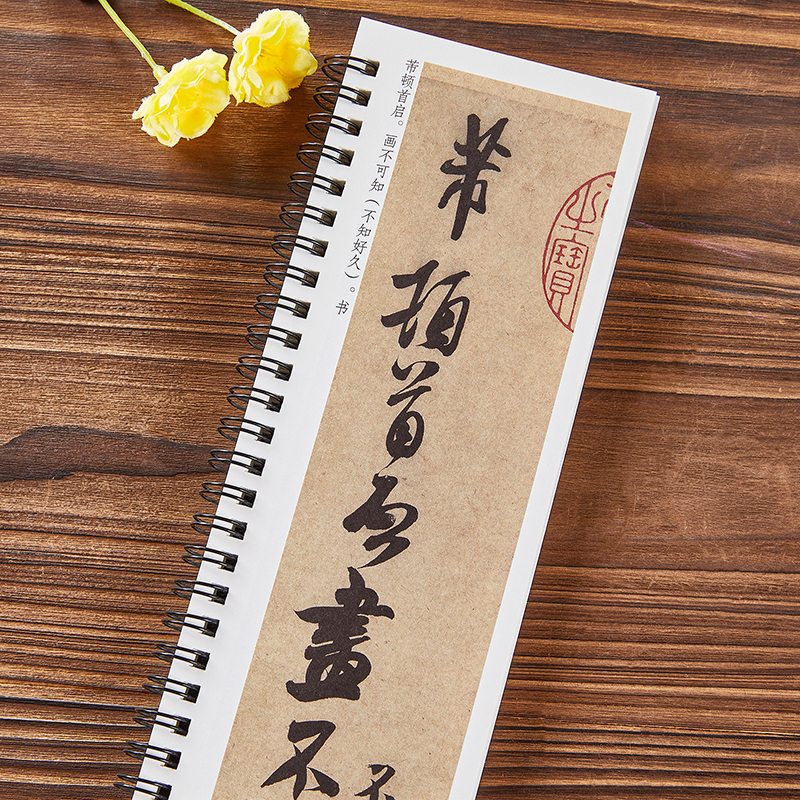 芾顿首启。画不可知（不知好久）。书
芾頓首启畫不
不
寶